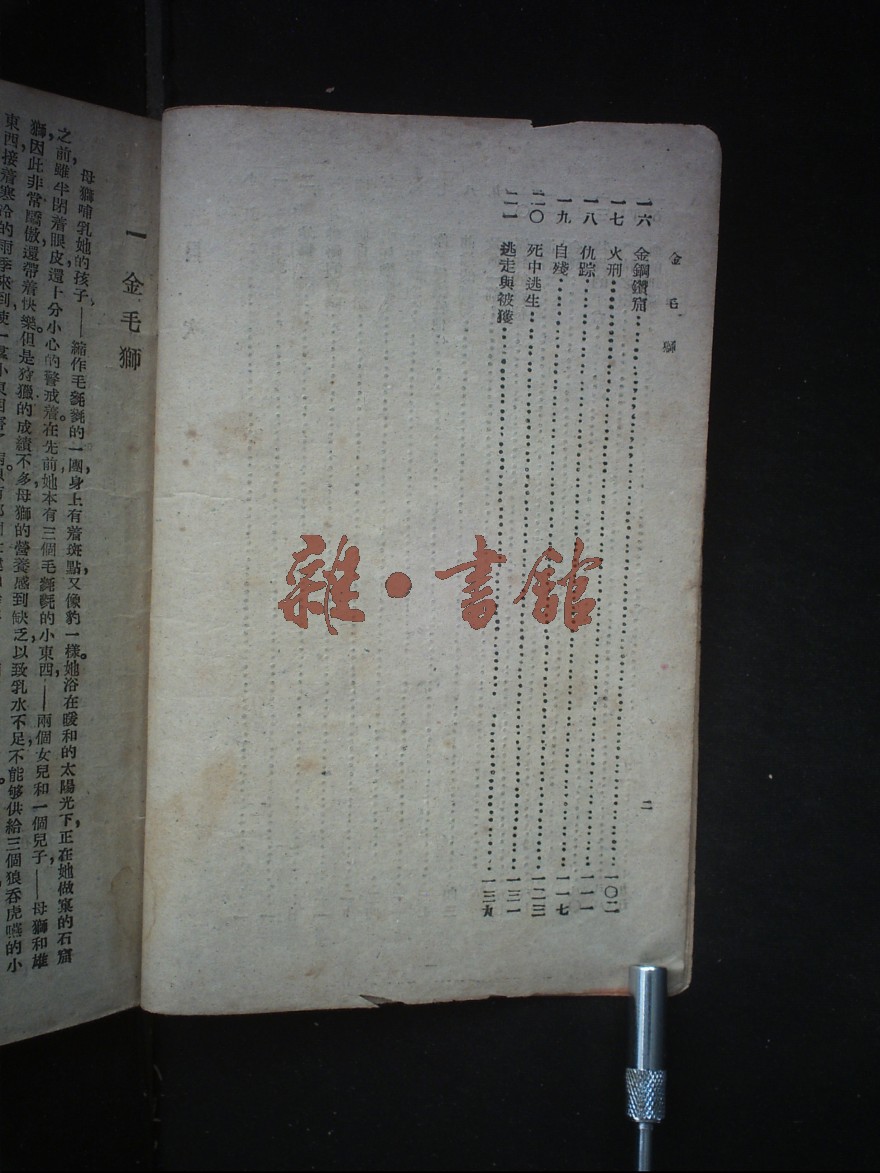 金毛獅
一六 金鋼鑽窟 一〇二
一七 火刑 一一一
一八 仇踪 一一七
一九 自殘 一二三
二〇 死中逃生 一三一
二一 逃走與被獲 一三九
二
雜·書館
一 金毛獅
母獅哺乳她的孩子——縮作毛毵毵的一團，身上有着斑點，又像豹一樣。她浴在暖和的太陽光下，正在她做窠的石窟
之前，雖半閉着眼皮，還十分小心的警戒着。在先前，她本有三個毛毵毵的小東西——兩個女兒和一個兒子——母獅和雄
獅，因此非常驕傲，還帶着快樂。但是狩獵的成績不多，母獅的營養，感到缺乏，以致乳水不足，不能够供給三個狼吞虎嚥的小
東西，接着寒冷的雨季來到，使